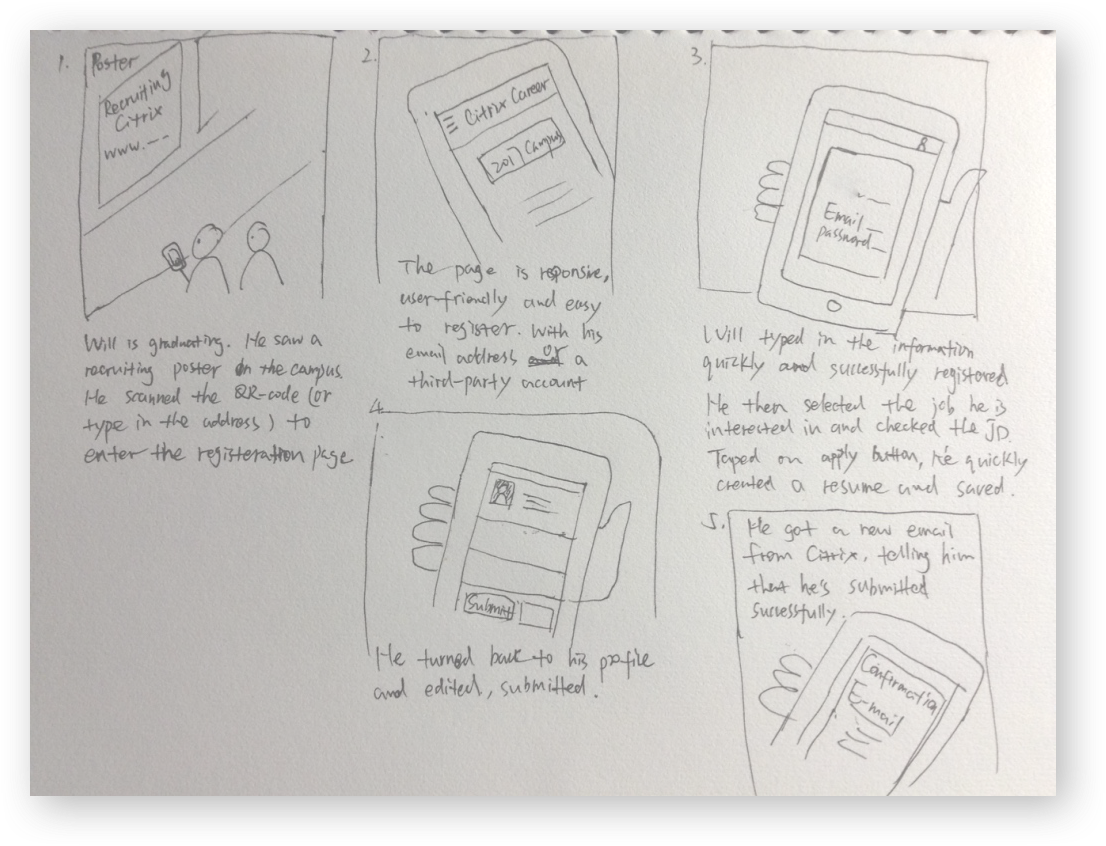 1.
Poster
Recruiting
Citrix
www.---
Will is graduating. He saw a
recruiting poster on the campus.
He scanned the QR-code (or
type in the address) to
enter the registeration page
2.
Citrix Career
2017 Campus
The page is reponsive,
user-friendly and easy
to register. With his
email address or a
third-party account
3.
Email_
password_
Will typed in the information
quickly and successfully registered
He then selected the job he is
interested in and checked the JD.
Taped on apply button, he quickly
created a resume and saved.
4.
Submit
He turned back to his profile
and edited, submitted.
5.
He got a new email
from Citrix, telling him
that he's submitted
successfully.
Confirmation
E-mail